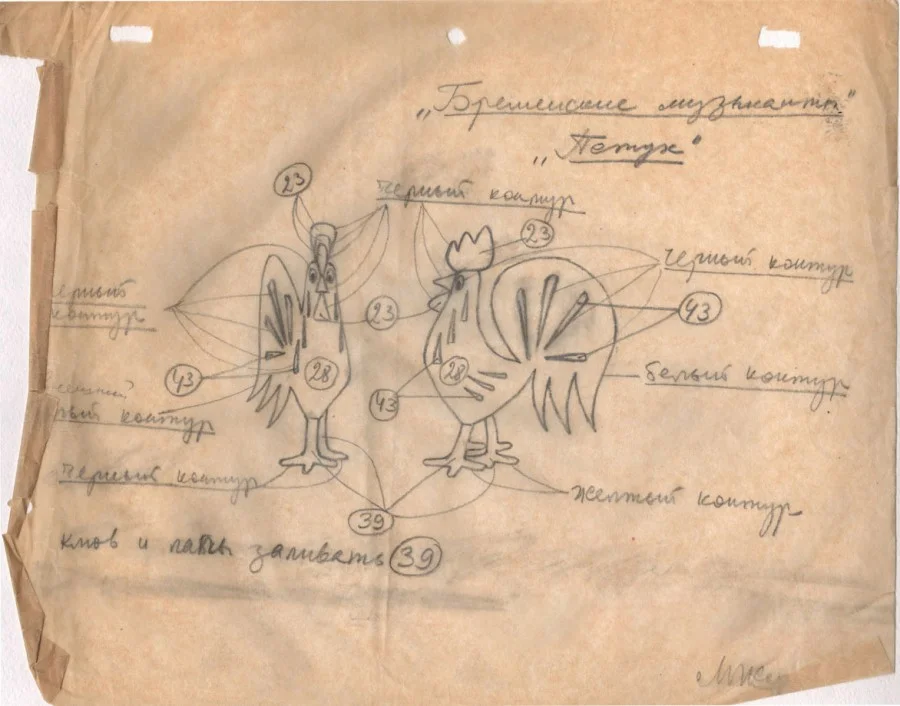 „Бременские музыканты"
„Петух"
23
черный контур
23
черный контур
23
43
контур
43
28
28
белый контур
43
контур
черный контур
желтый контур
39
клюв и лапы заливать 39